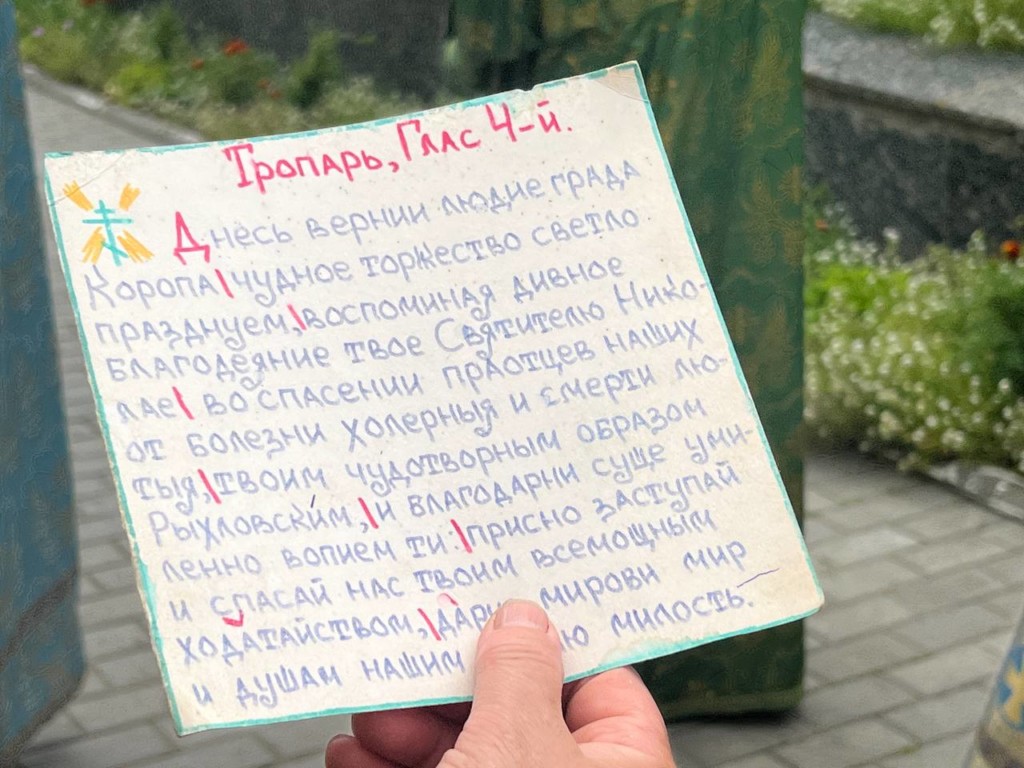 Тропарь, Глас 4-й.
Днесь вернии людие града
Коропа\чудное торжество светло
празднуем,\воспоминая дивное
благодеяние твое Святителю Нико-
лае\ во спасении праотцев наших
от болезни холерныя и смерти лю-
тыя,\твоим чудотворным образом
Рыхловским,\и благодарни суще уми-
ленно вопием ти:\присно заступай
и спасай нас твоим всемощным
ходатайством,\ мирови мир
и душам нашим милость.